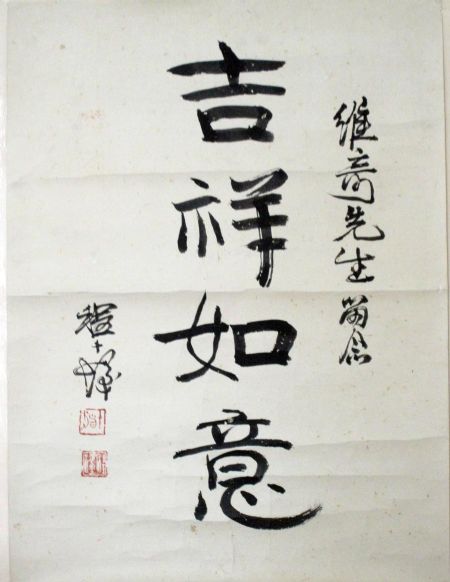 维奇先生留念
吉祥如意
程十髮